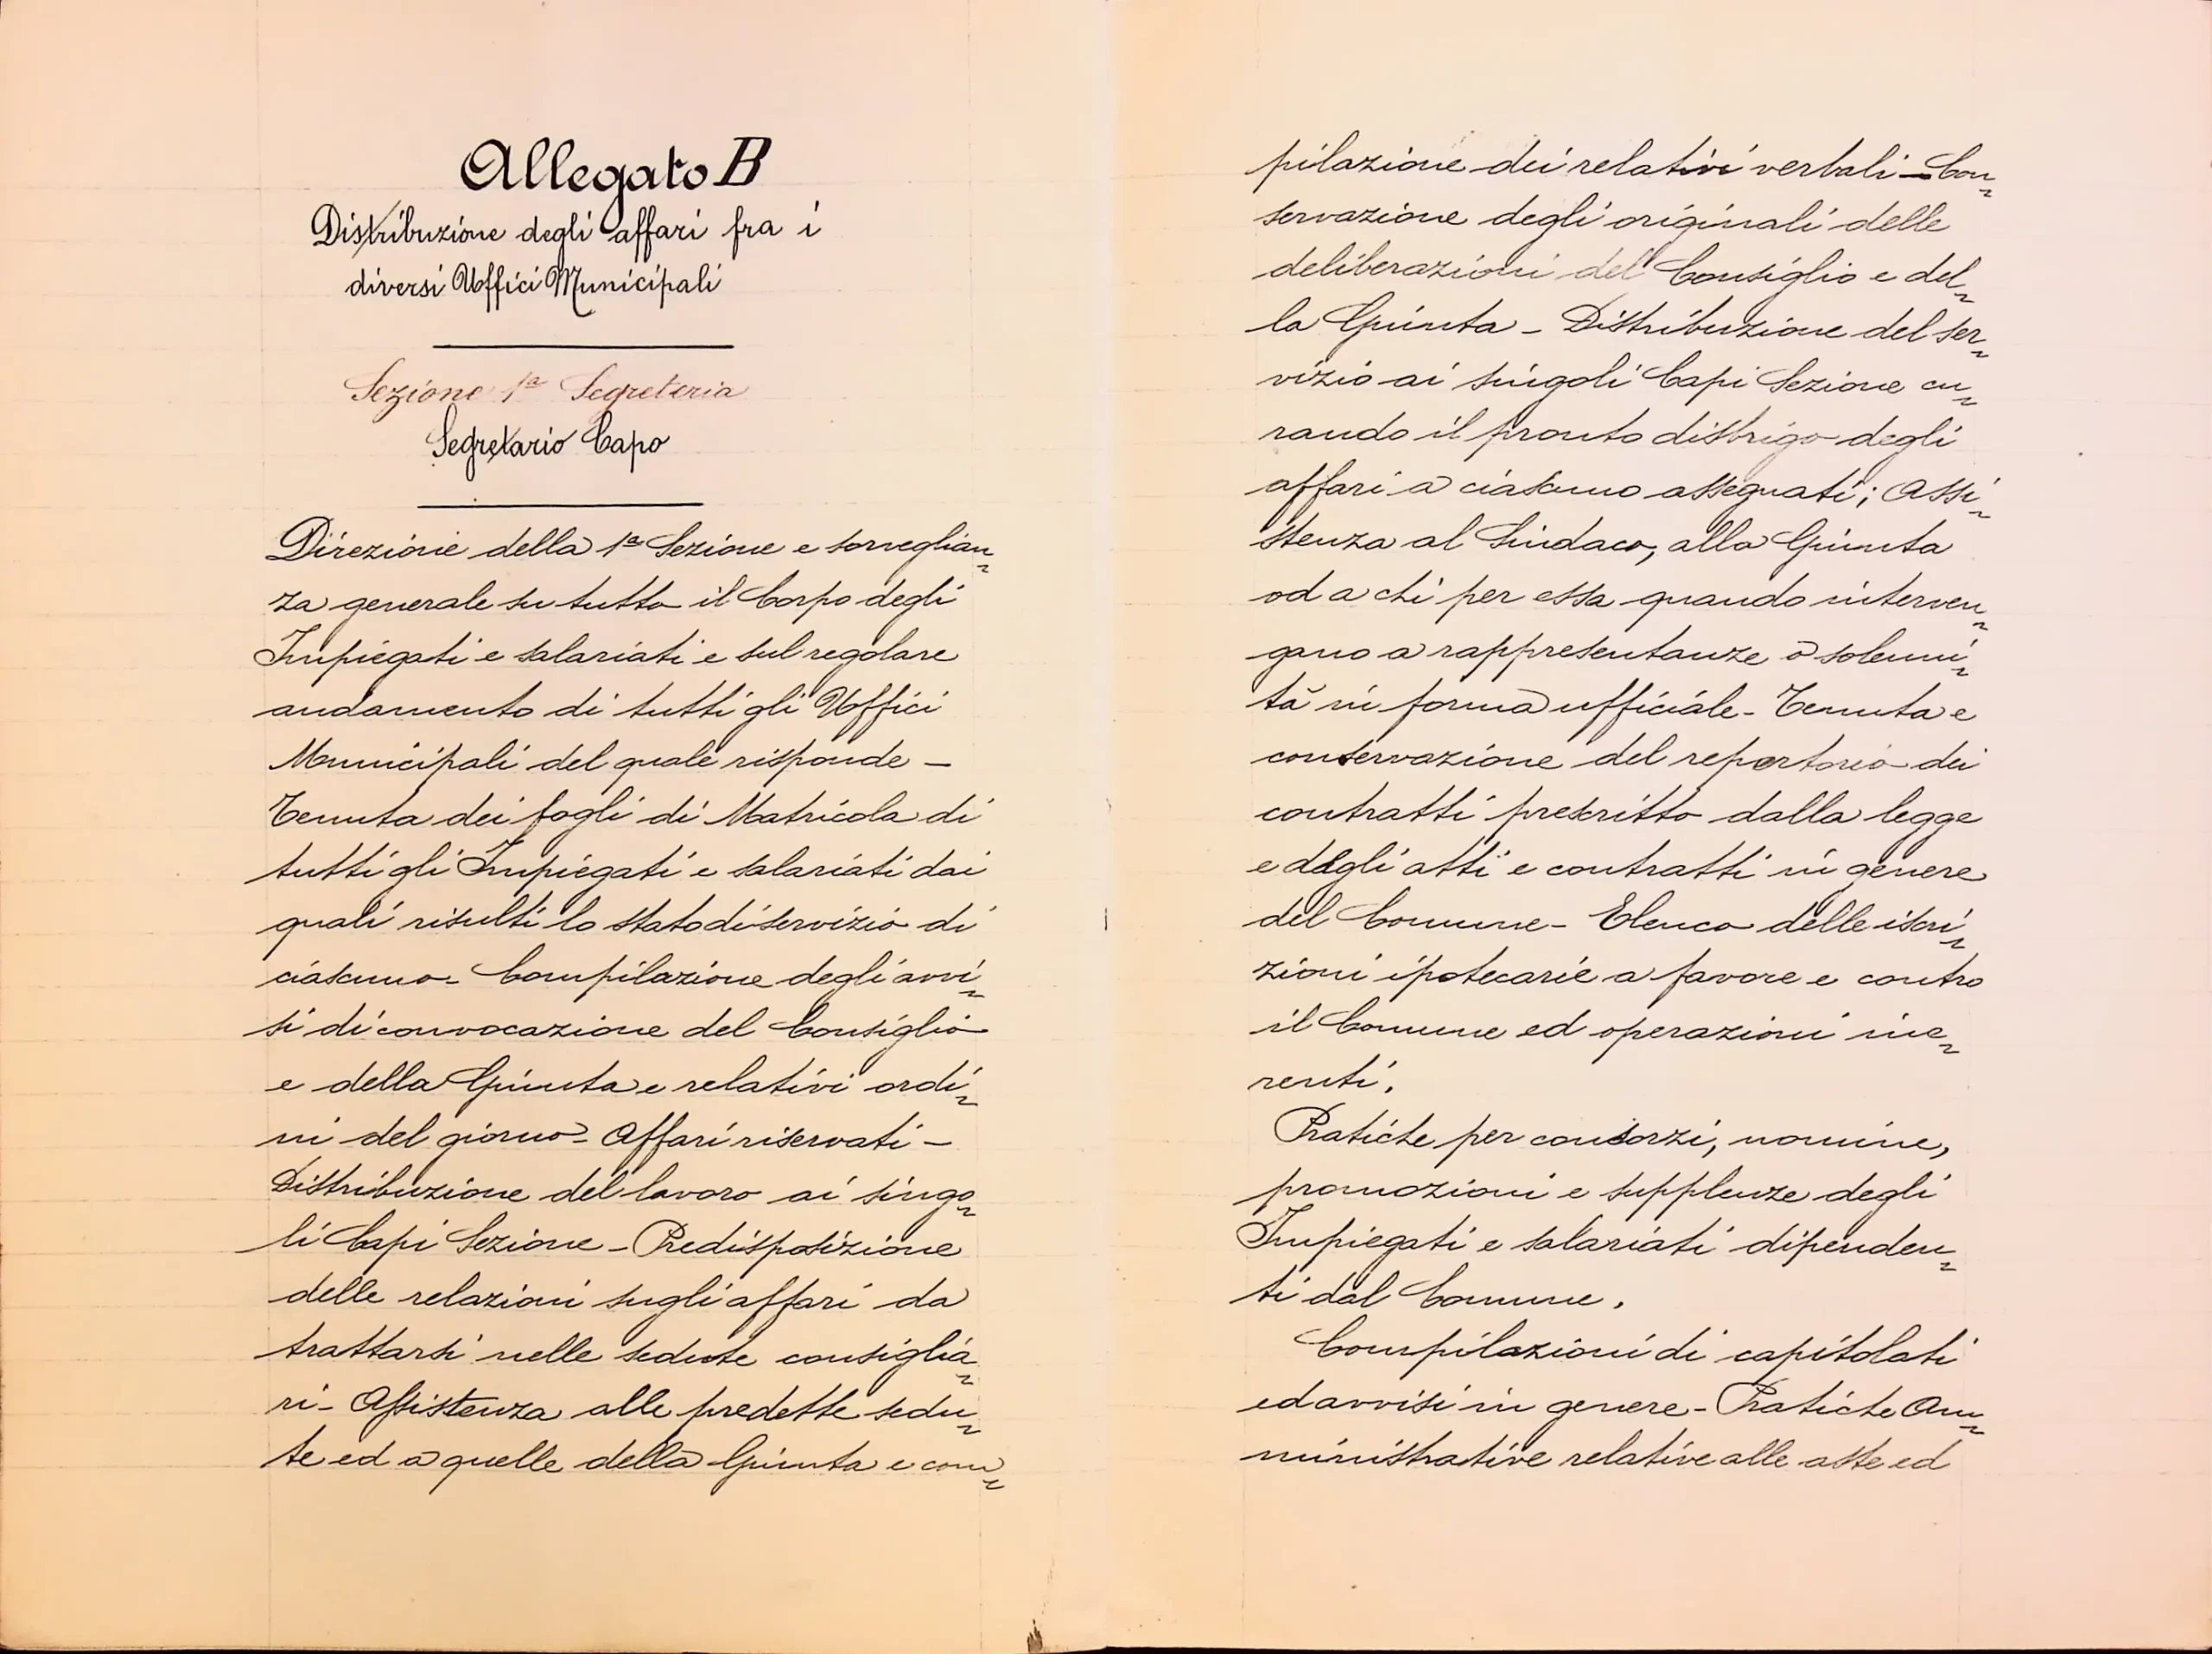 Allegato B
Distribuzione degli affari fra i
diversi Uffici Municipali
Sezione 1ª Segreteria
Segretario Capo
Direzione della 1ª Sezione e sorveglian
za generale su tutto il Corpo degli
Impiegati e salariati e sul regolare
andamento di tutti gli Uffici
Municipali del quale risponde –
Tenuta dei fogli di Matricola di
tutti gli Impiegati e salariati dai
quali risulti lo stato di servizio di
ciascuno – Compilazione degli avvi
si di convocazione del Consiglio
e della Giunta e relativi ordi
ni del giorno – Affari riservati –
Distribuzione del lavoro ai singo
li Capi Sezione – Predisposizione
delle relazioni sugli affari da
trattarsi nelle sedute consiglia
ri – Assistenza alle predette sedu
te ed a quelle della Giunta e com
pilazione dei relativi verbali – Con
servazione degli originali delle
deliberazioni del Consiglio e del
la Giunta – Distribuzione del ser
vizio ai singoli Capi Sezione cu
rando il pronto disbrigo degli
affari a ciascuno assegnati; Assi
stenza al Sindaco, alla Giunta
od a chi per essa quando interven
gano a rappresentanze o solenni
tà in forma ufficiale – Tenuta e
conservazione del repertorio dei
contratti prescritto dalla legge
e degli atti e contratti in genere
del Comune – Elenco delle iscri
zioni ipotecarie a favore e contro
il Comune ed operazioni ine
renti.
Pratiche per consorzi, nomine,
promozioni e supplenze degli
Impiegati e salariati dipenden
ti dal Comune.
Compilazioni di capitolati
ed avvisi in genere – Pratiche Am
ministrative relative alle aste ed